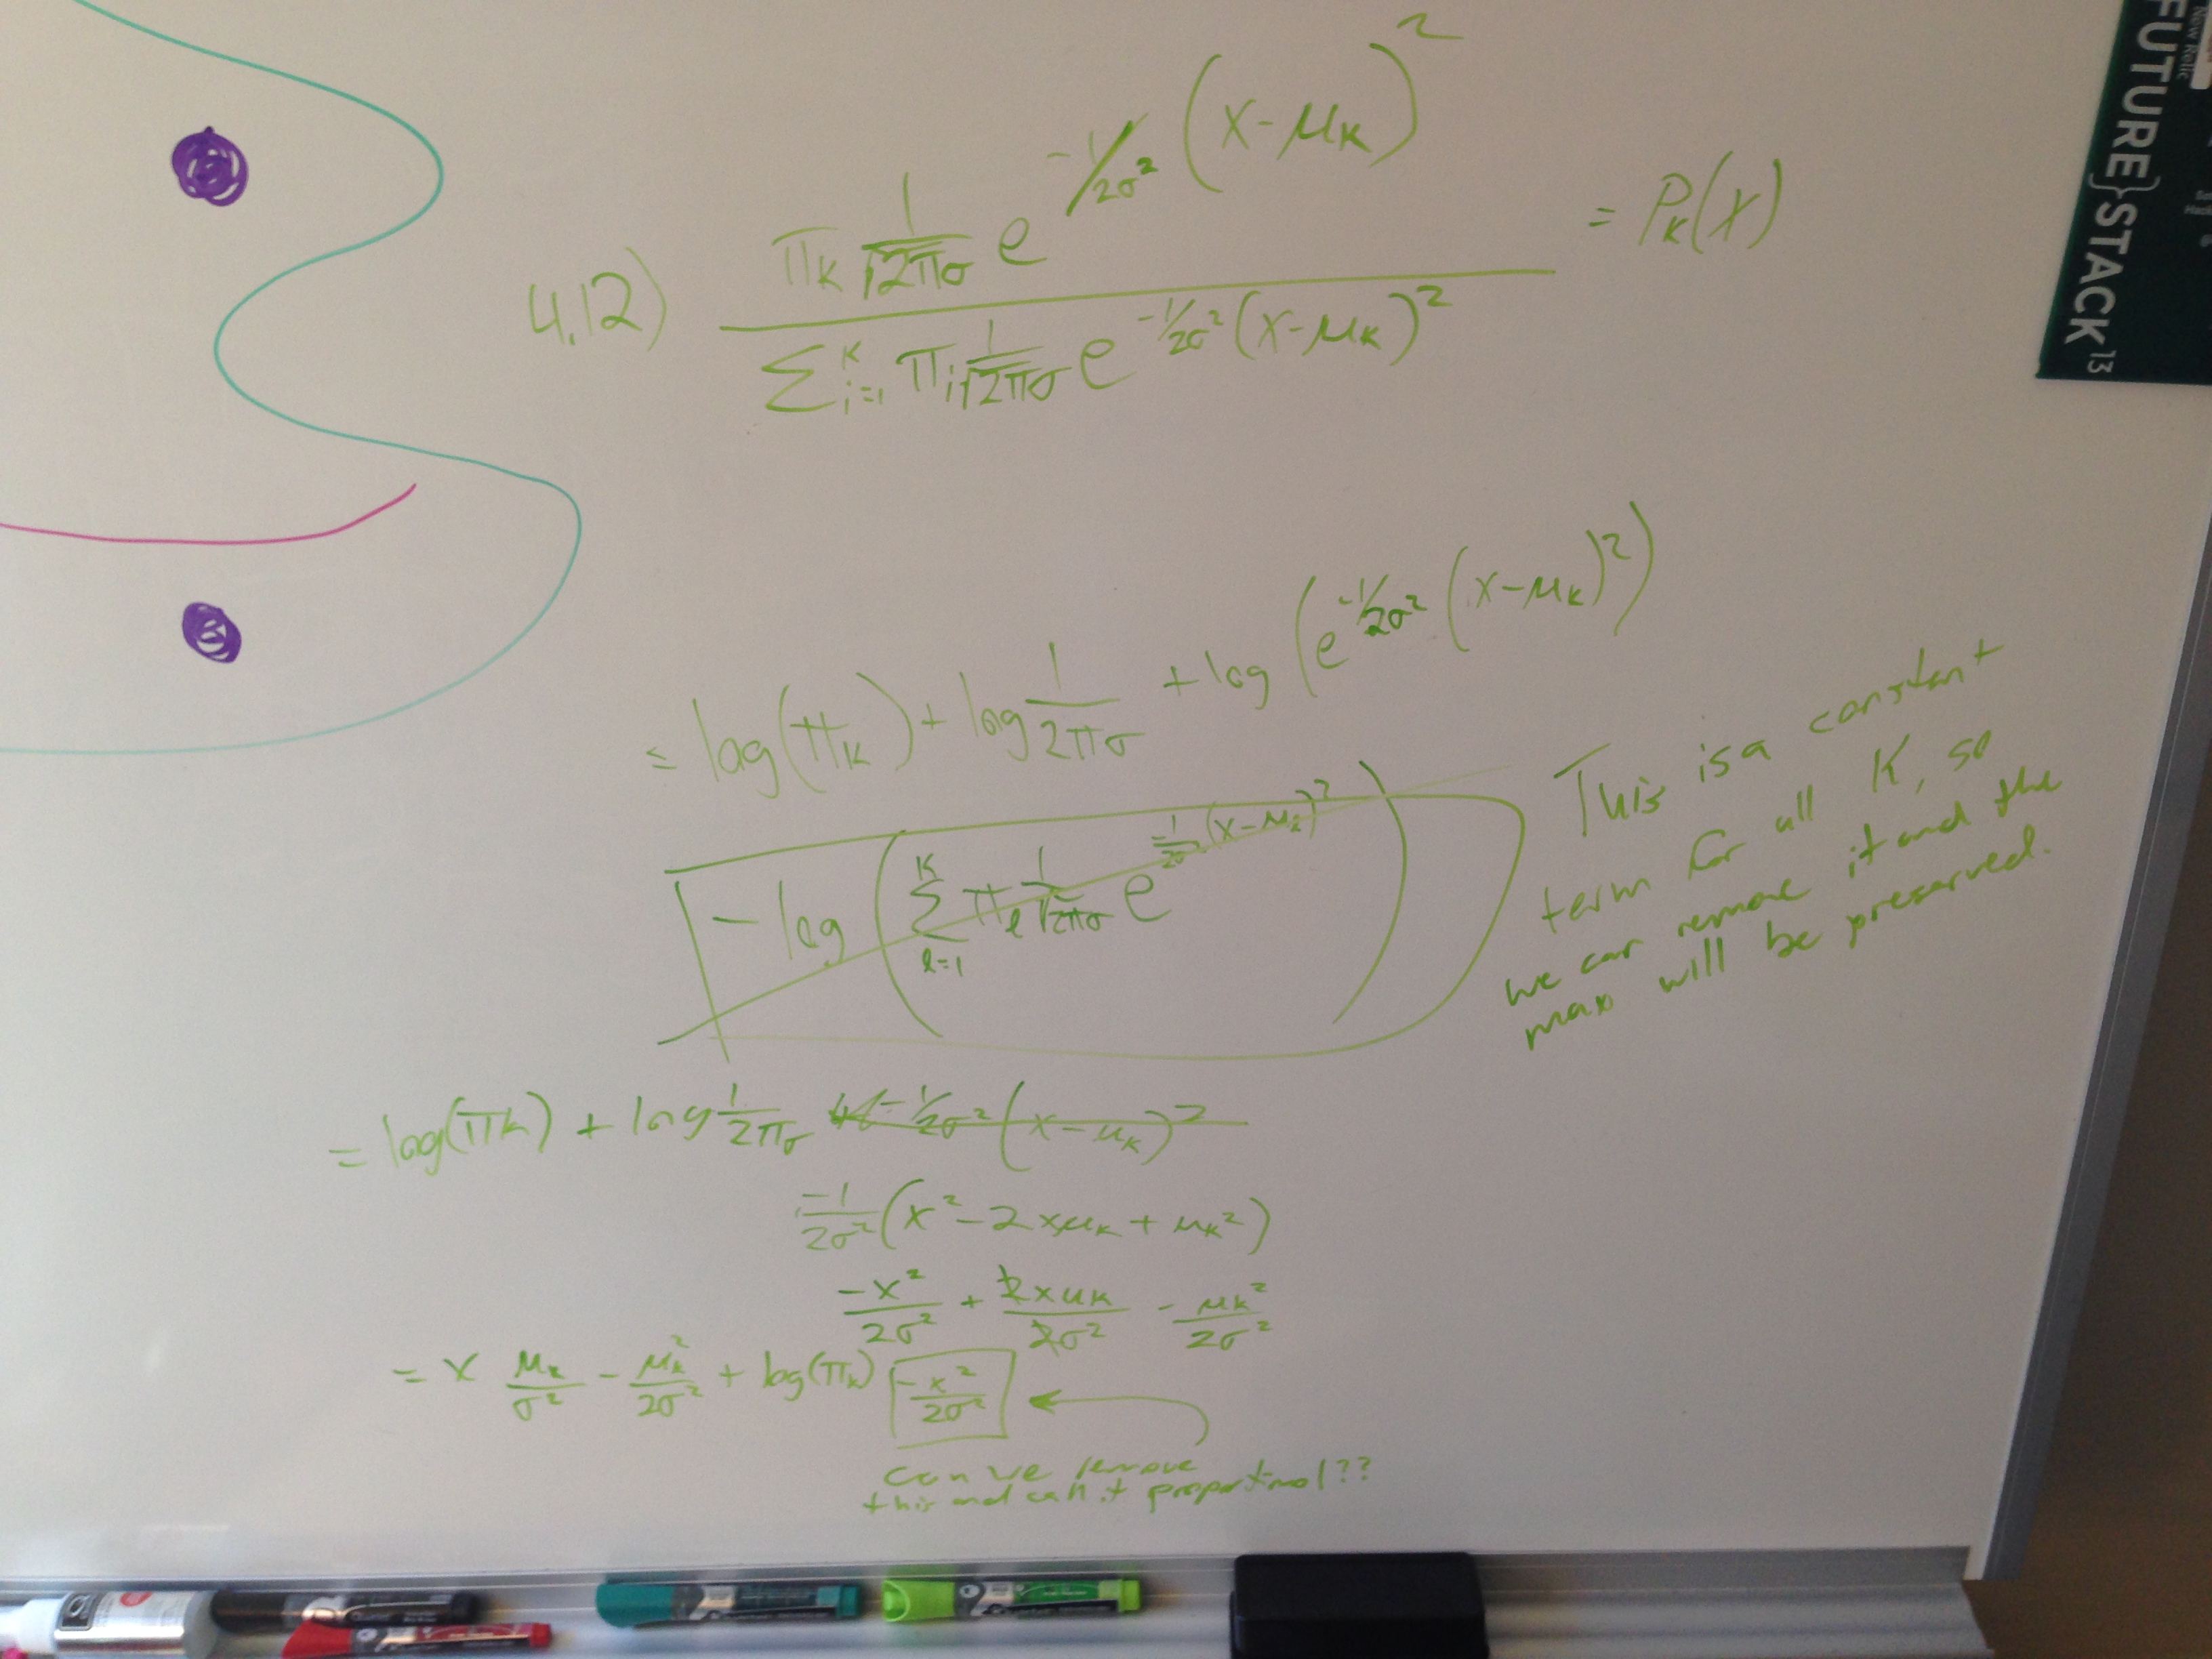 4.12) π_K 1/√2πσ e^(-1/2σ² (x-μ_K)²) / Σ_{i=1}^{K} π_i 1/√2πσ e^(-1/2σ² (x-μ_K)²) = P_K(X)
= log(π_K) + log 1/2πσ + log (e^(-1/2σ²) (x-μ_K)²)
- log (Σ_{l=1}^{K} π_l 1/√2πσ e^(-1/2σ² (x-μ_K)²))
This is a constant
term for all K, so
we can remove it and the
max will be preserved.
= log(π_K) + log 1/2πσ - 1/2σ² (x-μ_K)²
-1/2σ² (x² - 2xμ_K + μ_K²)
-x²/2σ² + 2xμ_K/2σ² - μ_K²/2σ²
= x μ_K/σ² - μ_K²/2σ² + log(π_K) -x²/2σ²
can we remove
this and call it proportional??
New Relic
FUTURE}STACK 13